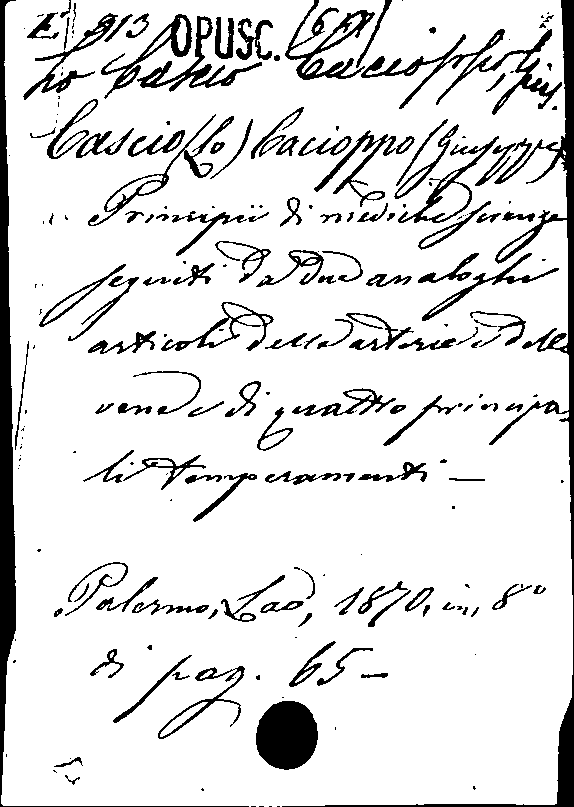 E 913 OPUSC. (6 A)
Lo Cascio Cacioppo, Gius.
Cascio (Lo) Cacioppo (Giuseppe)
Principii di mediche scienze
seguiti da due analoghi
articoli delle arterie e delle
vene e di quattro principa-
li temperamenti —
Palermo, Lao, 1870, in, 8º
di pag. 65 —